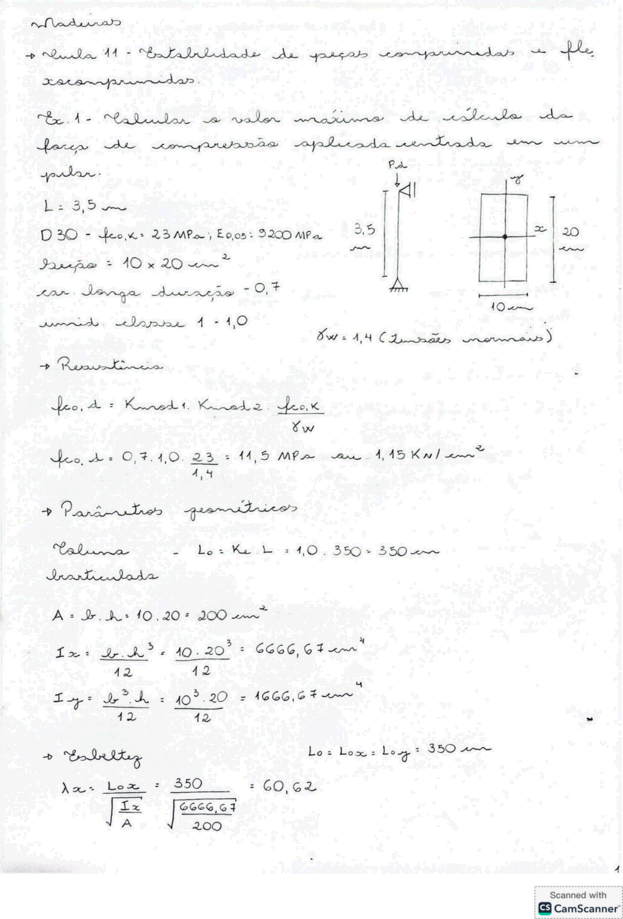 Madeiras
→ Aula 11 - Estabilidade de peças comprimidas e fle,
xocomprimidas.
Ex. 1 - Calcular o valor máximo de cálculo da
força de compressão aplicada centrada em um
pilar.
L = 3,5 m
D30 - fc0,k = 23 MPa ; E0,05 = 9200 MPa
Seção = 10 x 20 cm²
car longa duração - 0,7
umid. classe 1 - 1,0
Pd
3,5
m
y
x
20
cm
10 cm
γw = 1,4 (tensões normais)
→ Resistência
fc0,d = Kmod1 . Kmod2 . fc0,k / γw
fc0,d = 0,7 . 1,0 . 23 / 1,4 = 11,5 MPa ou 1,15 KN/cm²
→ Parâmetros geométricos
Coluna - L0 = Ke . L = 1,0 . 350 = 350 cm
biarticulada
A = b . h = 10 . 20 = 200 cm²
Ix = b . h³ / 12 = 10 . 20³ / 12 = 6666,67 cm⁴
Iy = b³ . h / 12 = 10³ . 20 / 12 = 1666,67 cm⁴
→ Esbeltez
L0 = L0x = L0y = 350 cm
λx = L0x / √(Ix / A) = 350 / √(6666,67 / 200) = 60,62
1
Scanned with
CS CamScanner